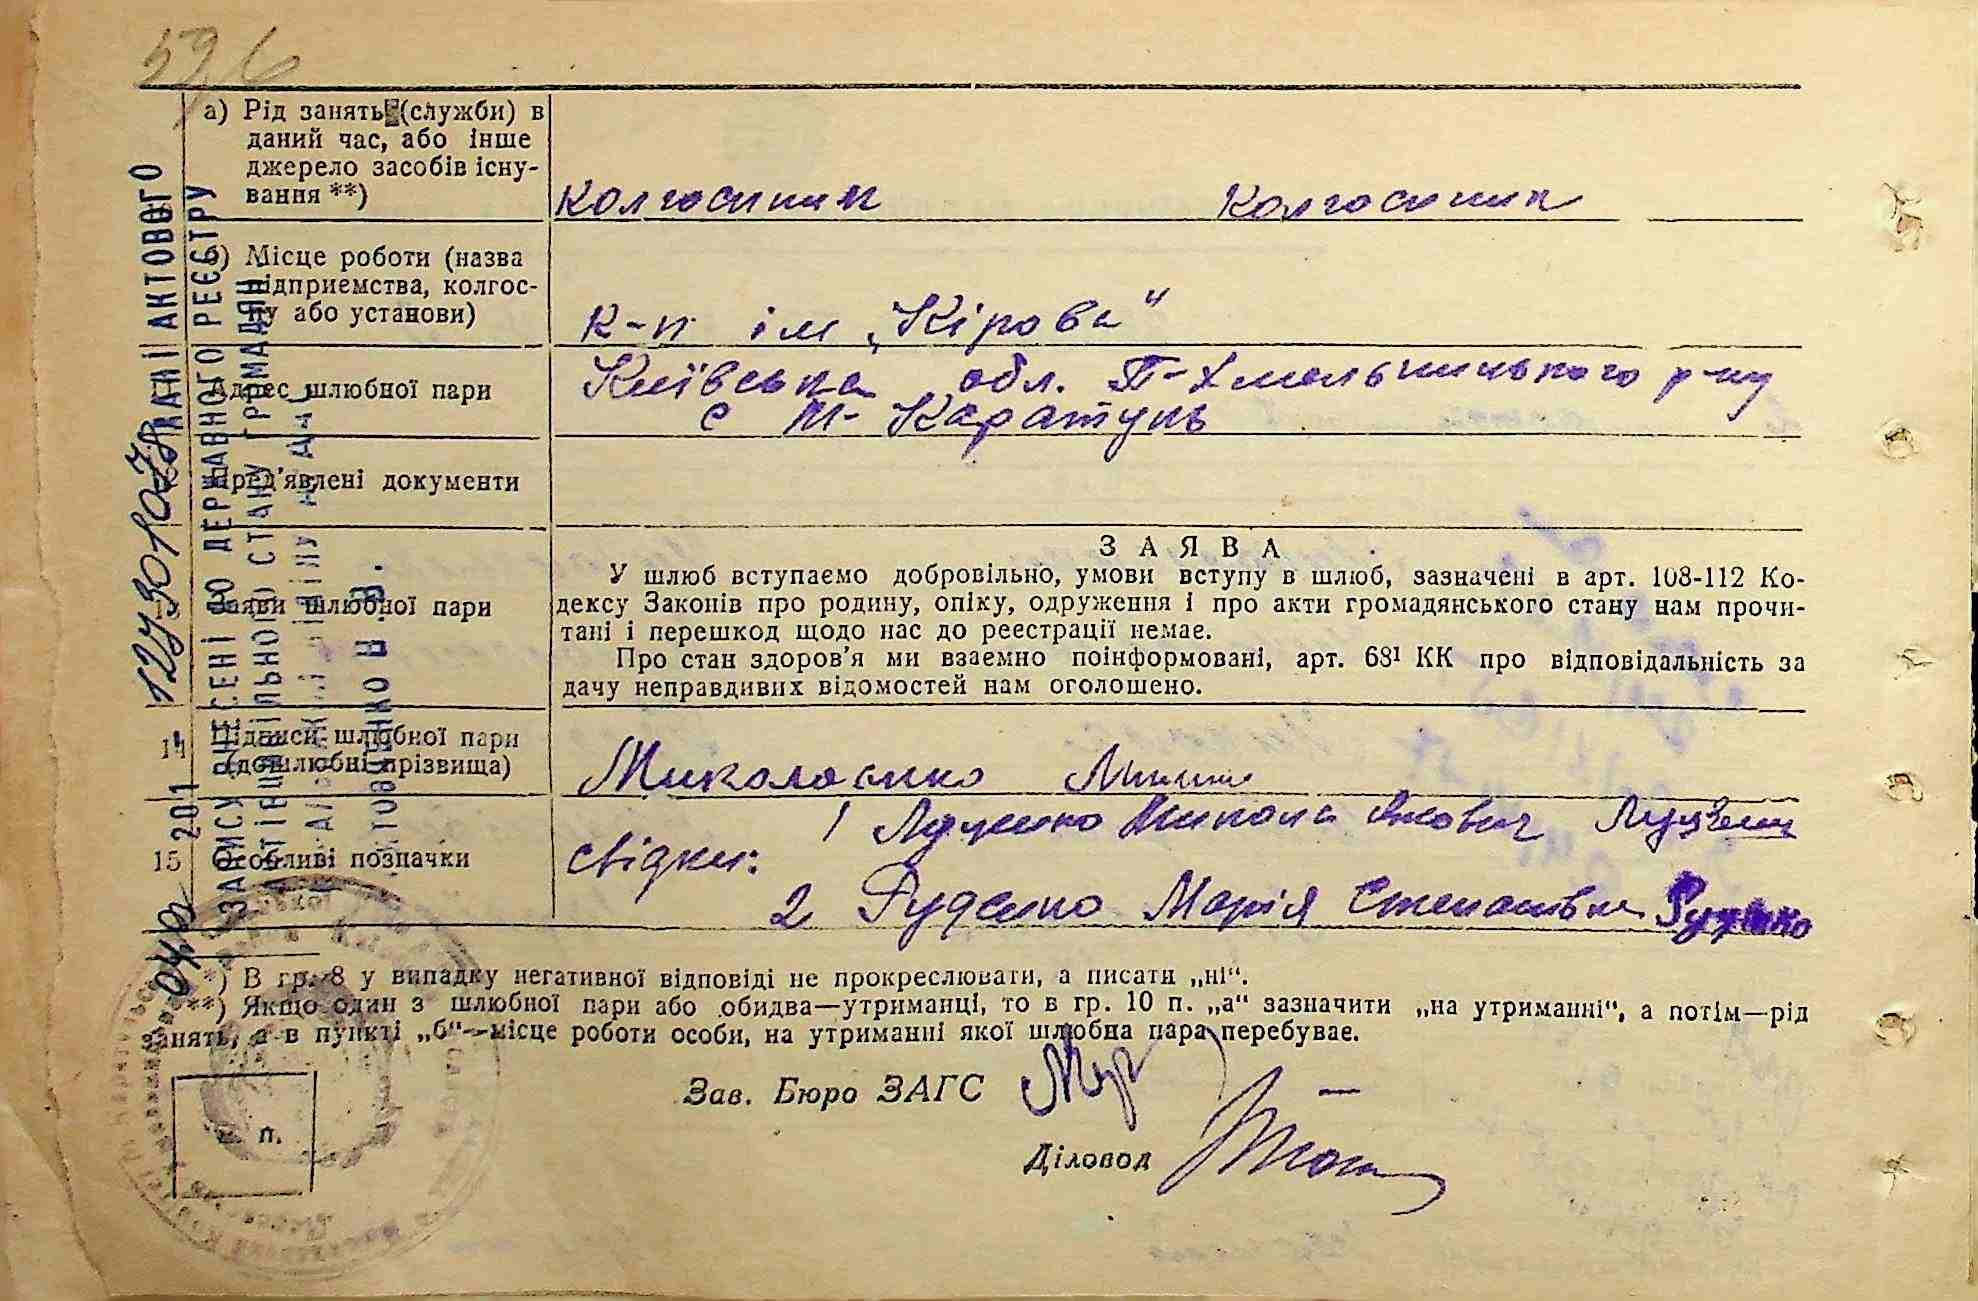 596
а) Рід занять (служби) в
даний час, або інше
джерело засобів існу-
вання **)
колгоспник колгоспник
б) Місце роботи (назва
підприемства, колгос-
пу або установи)
к-п ім „Кірова"
Адрес шлюбної пари
Київська обл. П-Хмельницького р-ну
с Т-Каратунь
Пред'явлені документи
З А Я В А
У шлюб вступаемо добровільно, умови вступу в шлюб, зазначені в арт. 108-112 Ко-
дексу Законів про родину, опіку, одруження і про акти громадянського стану нам прочи-
тані і перешкод щодо нас до реестрації немае.
Про стан здоров'я ми взаемно поінформовані, арт. 68¹ КК про відповідальність за
дачу неправдивих відомостей нам оголошено.
Заяви шлюбної пари
14 Підписи шлюбної пари
(дошлюбні прізвища)
Миколаенко
15 Особливі позначки
свідки:
1 Луценко Микола
2 Руденко Марія Степанівна Руденко
*) В гр. 8 у випадку негативної відповіді не прокреслювати, а писати „ні".
**) Якщо один з шлюбної пари або обидва—утриманці, то в гр. 10 п. „а" зазначити „на утриманні", а потім—рід
занять, а в пункті „б"—місце роботи особи, на утриманні якої шлюбна пара перебувае.
Зав. Бюро ЗАГС
Діловод
п.
ДАНІ АКТОВОГО
ЗАПИСУ ВНЕСЕНІ ДО ДЕРЖАВНОГО РЕЄСТРУ
АКТІВ ЦИВІЛЬНОГО СТАНУ ГРОМАДЯН